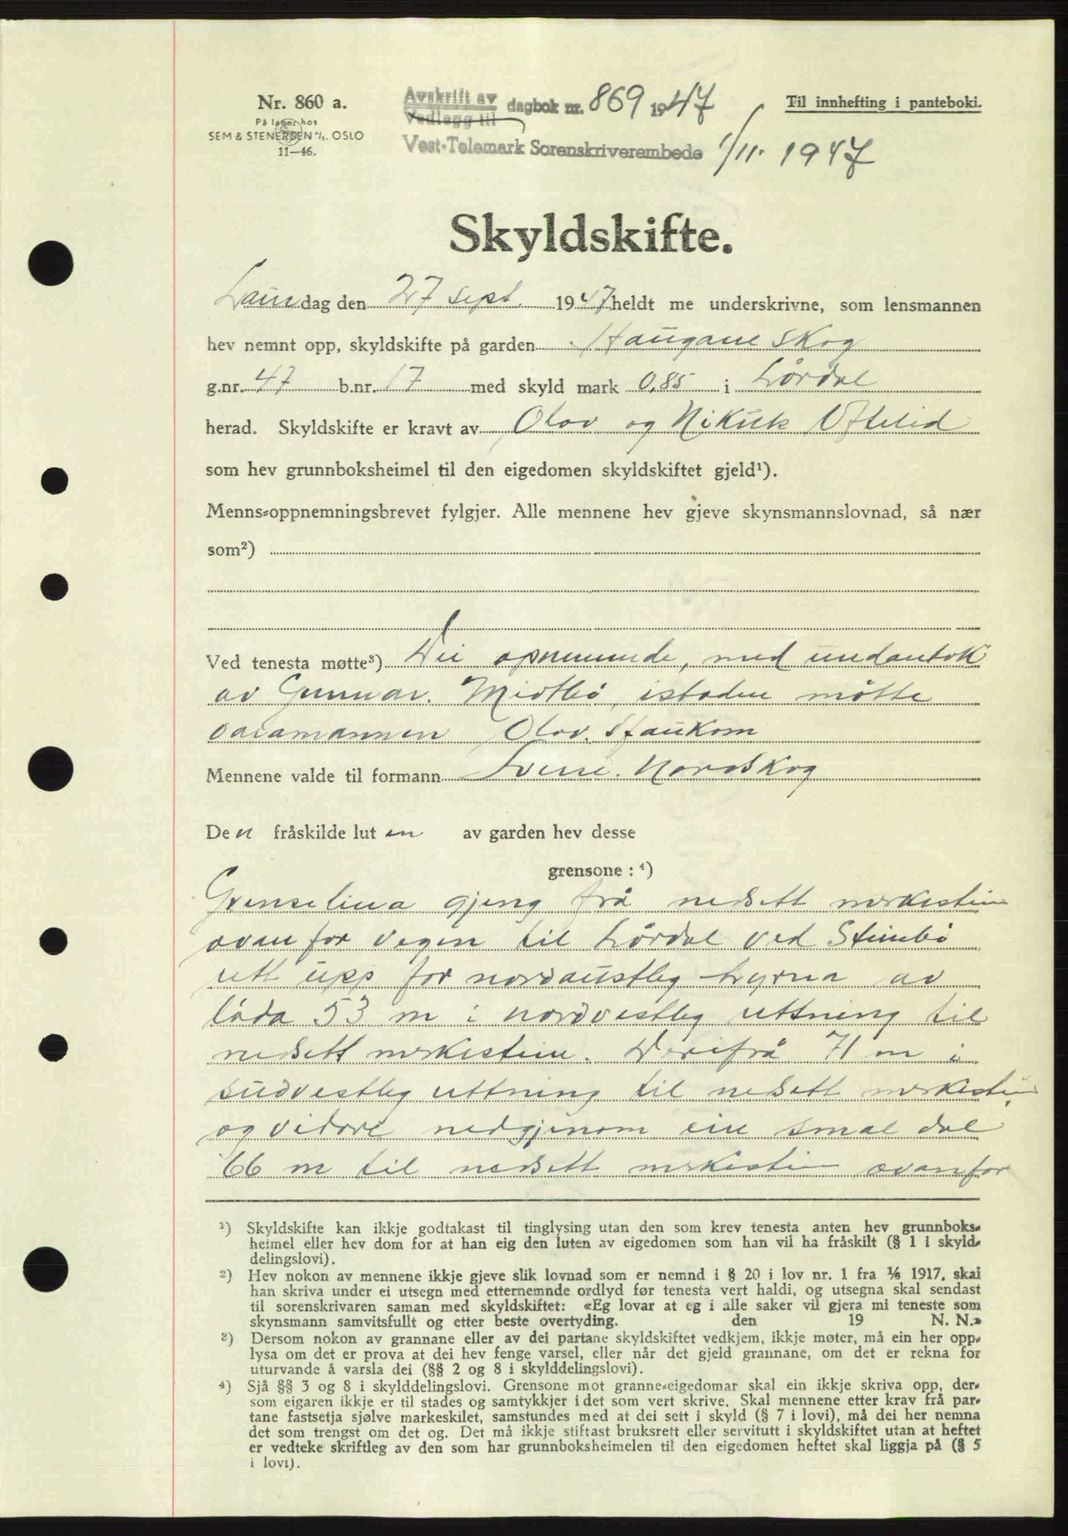 Nr. 860 a.
På lager hos
SEM & STENERSEN A/S. OSLO
11—46.
Avskrift av
Vedlegg til
dagbok nr. 869 1947
Vest-Telemark Sorenskriverembede 1/11. 1947
Til innhefting i panteboki.
Skyldskifte.
Laurdag den 27 sept. 1947 heldt me underskrivne, som lensmannen
hev nemnt opp, skyldskifte på garden Haugane Skog
g.nr. 47 b.nr. 17 med skyld mark 0,85 i Lårdal
herad. Skyldskifte er kravt av Olav og Nikuls Oftelid
som hev grunnboksheimel til den eigedomen skyldskiftet gjeld¹).
Menns-oppnemningsbrevet fylgjer. Alle mennene hev gjeve skynsmannslovnad, så nær
som²)
Ved tenesta møtte³) Dei opnemnde, med undantak
av Gunnar. Midtbø, istaden møtte
varamannen Olav.
Mennene valde til formann Sveine. Nordskog
Den fråskilde luten av garden hev desse
grensone : ⁴)
Grenselina gjeng frå nedsett merkestein
ovanfor vegen til Lårdal ved Steinbø
rett upp for nordaustleg hyrna av
låda 53 m i nordvestleg rettning til
nedsett merkestein. Derifrå 71 m i
sudvestleg rettning til nedsett merkestein
og vidare nedgjenom ein smal dal
66 m til nedsett merkestein ovanfor
¹) Skyldskifte kan ikkje godtakast til tinglysing utan den som krev tenesta anten hev grunnboks-
heimel eller hev dom for at han eig den luten av eigedomen som han vil ha fråskilt (§ 1 i skyld-
delingslovi).
²) Hev nokon av mennene ikkje gjeve slik lovnad som er nemnd i § 20 i lov nr. 1 fra 1/6 1917, skal
han skriva under ei utsegn med etternemnde ordlyd før tenesta vert haldi, og utsegna skal sendast
til sorenskrivaren saman med skyldskiftet: «Eg lovar at eg i alle saker vil gjera mi teneste som
skynsmann samvitsfullt og etter beste overtyding. den 19 N. N.»
³) Dersom nokon av grannane eller av dei partane skyldskiftet vedkjem, ikkje møter, må ein her opp-
lysa om det er prova at dei hev fenge varsel, eller når det gjeld grannane, om det er rekna for
uturvande å varsla dei (§§ 2 og 8 i skylddelingslovi).
⁴) Sjå §§ 3 og 8 i skylddelingslovi. Grensone mot granne-eigedomar skal ein ikkje skriva opp, der-
som eigaren ikkje er til stades og samtykkjer i det som vert skrive. Skal mennene etter krav frå par-
tane fastsetja sjølve markeskilet, samstundes med at dei sett i skyld (§ 7 i lovi), må dei her nemna
det som trengst om det og. Det må ikkje stiftast bruksrett eller servitutt i skyldskiftet utan at heftet
er vedteke skriftleg av den som har grunnboksheimelen til den eigedomen heftet skal liggja på (§ 5
i lovi).